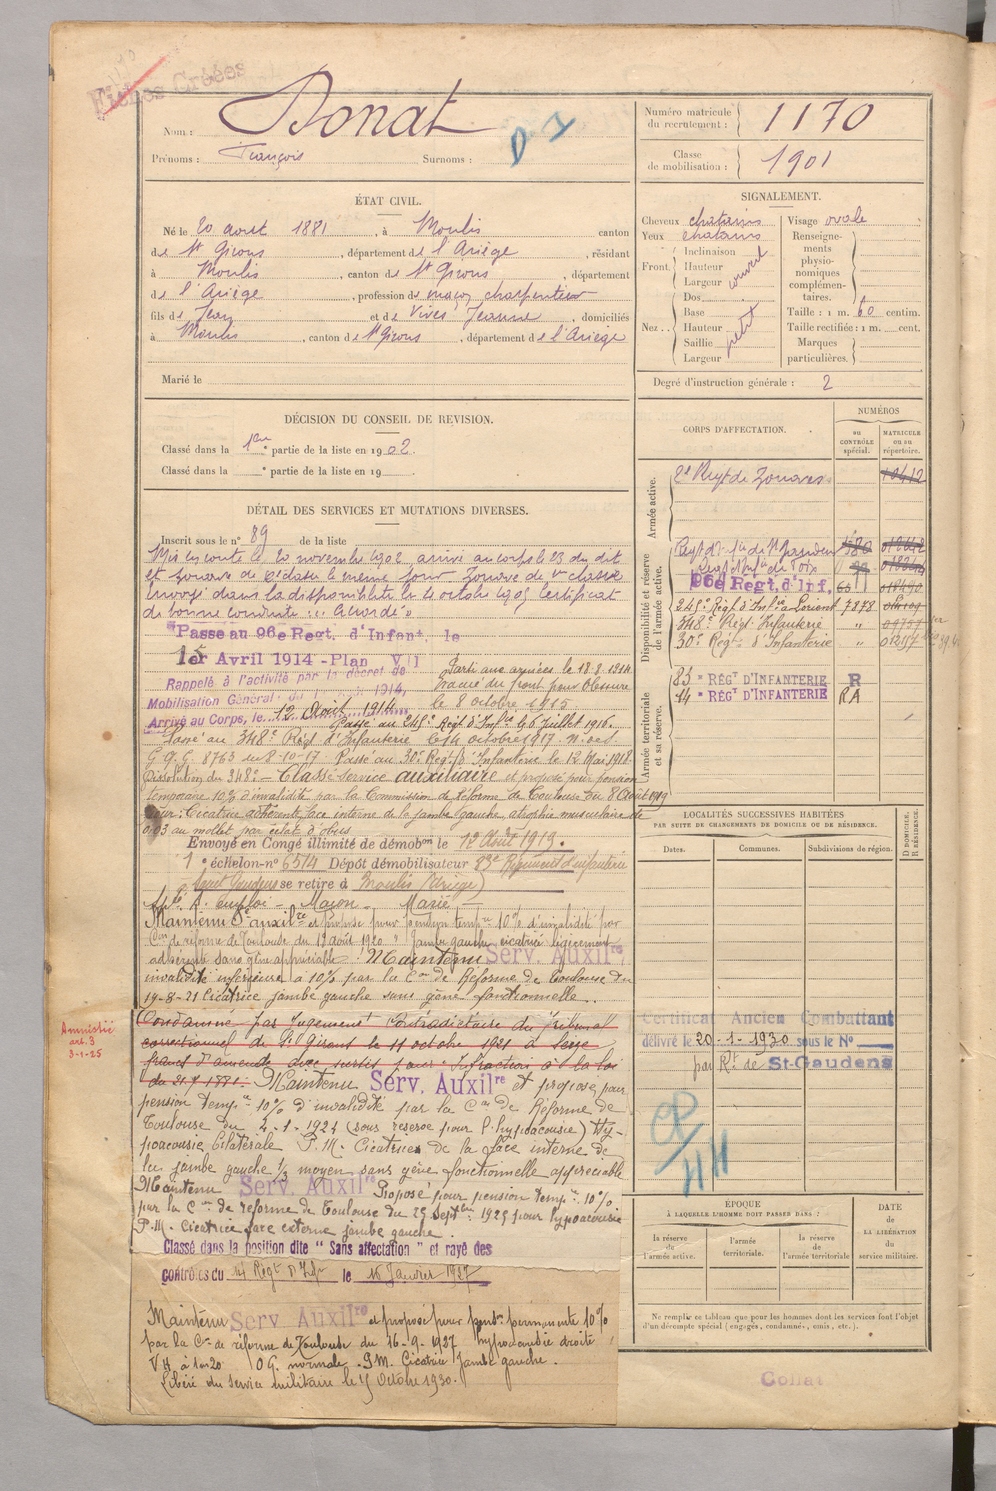 Fiches Créées
Nom : Donat
Prénoms : François Surnoms :
D I
Numéro matricule du recrutement : 1170
Classe de mobilisation : 1901
ÉTAT CIVIL.
Né le 20 aout 1881, à Moulis canton
de St Girons, département de l'Ariège, résidant
à Moulis, canton de St Girons, département
de l'Ariège, profession de maçon charpentier
fils de Jean et de Vives Jeanne, domiciliés
à Moulis, canton de St Girons, département de l'Ariège
Marié le
SIGNALEMENT.
Cheveux chatains
Yeux chatains
Front. Inclinaison
Hauteur
Largeur
couvert
Nez. Dos
Base
Hauteur
Saillie
Largeur
petit
Visage ovale
Renseignements physionomiques complémentaires.
Taille : 1 m. 60 centim.
Taille rectifiée : 1 m. cent.
Marques particulières.
Degré d'instruction générale : 2
DÉCISION DU CONSEIL DE REVISION.
Classé dans la 1ère partie de la liste en 1902.
Classé dans la e partie de la liste en 19
DÉTAIL DES SERVICES ET MUTATIONS DIVERSES.
Inscrit sous le n° 89 de la liste
Mis en route le 20 novembre 1902 arrivé au corps le 23 du dit
et zouave de 2e classe le même jour. Zouave de 1e classe
Envoyé dans la disponibilité le 4 octobre 1905 Certificat
de bonne conduite "accordé"
Passé au 96e Regt. d'Infant. le
15
1er Avril 1914 - Plan VII
Rappelé à l'activité par le décret de
Mobilisation Générale du 1er Août 1914,
Arrivé au Corps, le 12 Août 1914
Parti aux armées le 18-8-1914
Evacué du front pour blessure
le 8 octobre 1915
Passé au 248e Régt d'Infie le 6 Juillet 1916
Passé au 348e Régt d'Infanterie le 14 octobre 1917. N. de S.
G.Q.G. 8763 du 8-10-17 Passé au 30e Regt d'Infanterie le 12 Mai 1918
Dissolution du 348e - Classé service auxiliaire et proposé pour pension
temporaire 10% d'invalidité par la Commission de Réforme de Toulouse du 8 Août 1919
pour : Cicatrice adhérente face interne de la jambe gauche, atrophie musculaire de
0,03 au mollet par éclat d'obus
Envoyé en Congé illimité de démobon le 12 Août 1919.
1e échelon-n° 6514 Dépôt démobilisateur 83e Régiment d'infanterie
Saint Gaudens se retire à Moulis (Ariège)
Maçon Marié
Maintenu Sce auxilre et proposé pour pension tempre 10% d'invalidité par
Con de réforme de Toulouse du 19 août 1920 " Jambe gauche cicatrice légèrement
adhérente sans gêne appréciable. Maintenu Serv. Auxilre
invalidité inférieure à 10% par la Con de Réforme de Toulouse du
19-8-21 Cicatrice jambe gauche sans gêne fonctionnelle..
Amnistié
art. 3
3-1-25
Condamné par Jugement Contradictoire du Tribunal
correctionnel de St Girons le 11 octobre 1921 à seize
francs d'amende avec sursis pour Infraction à la loi
du 1881. Maintenu Serv. Auxilre et proposé pour
pension tempre 10% d'invalidité par la Con de Réforme de
Toulouse du 2-1-1924 (sous réserve pour l'hypoacousie) Hy-
poacousie bilatérale P.M. Cicatrices de la face interne de
la jambe gauche 1/3 moyen sans gêne fonctionnelle appréciable
Maintenu Serv. Auxilre Proposé pour pension tempre 10%
par la Con de réforme de Toulouse du 29 Septbre 1925 pour hypoacousie
P.M. Cicatrice face externe jambe gauche.
Classé dans la position dite " Sans affectation " et rayé des
contrôles du 14e Régt d'Infie le 16 Janvier 1927
Maintenu Serv Auxilre et proposé pour pension permanente 10%
par la Con de réforme de Toulouse du 16-9-1927 hypoacousie droite
VH à 1m20 OG. normale. P.M. Cicatrice Jambe gauche.
Libéré du service militaire le 15 Octobre 1930.
CORPS D'AFFECTATION.
NUMÉROS
au CONTRÔLE spécial.
MATRICULE ou au répertoire.
Armée active.
2e Regt de Zouaves 10412
Disponibilité et réserve de l'armée active.
Regt d'Infie de St Gaudens
Regt d'Infie de Foix
96e Régt. d'Inf.
248e Régt d'Infie Lorient 7878
348e Régt Infanterie "
30e Regt d'Infanterie "
Armée territoriale et sa réserve.
83e RÉGT D'INFANTERIE R
14e RÉGT D'INFANTERIE RA
LOCALITÉS SUCCESSIVES HABITÉES
PAR SUITE DE CHANGEMENTS DE DOMICILE OU DE RÉSIDENCE.
Dates. Communes. Subdivisions de région. D DOMICILE, R RÉSIDENCE
Certificat Ancien Combattant
délivré le 20-1-1930 sous le N°
par Rt de St-Gaudens
CP
HH
ÉPOQUE
À LAQUELLE L'HOMME DOIT PASSER DANS :
la réserve de l'armée active.
l'armée territoriale.
la réserve de l'armée territoriale
DATE de LA LIBÉRATION du service militaire.
Ne remplir ce tableau que pour les hommes dont les services font l'objet
d'un décompte spécial (engagés, condamnés, omis, etc.).
Collat